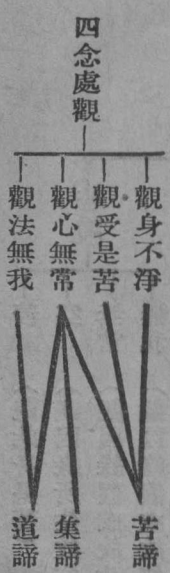 四念處觀
觀身不淨
觀受是苦
觀心無常
觀法無我
苦諦
集諦
道諦